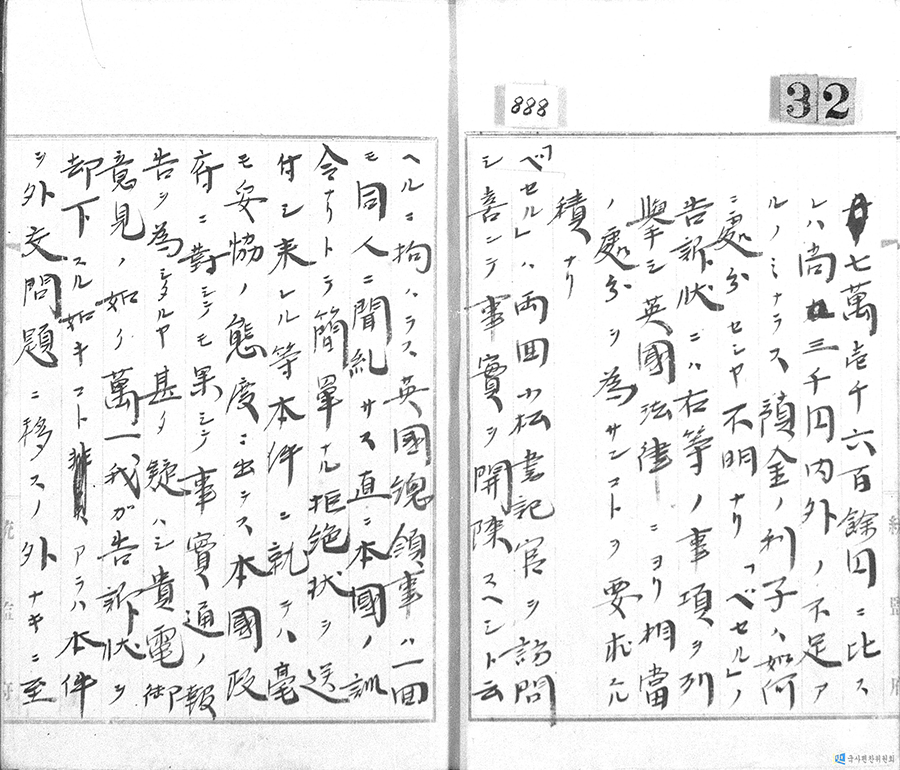 32
888
七萬壱千六百餘円ニ比ス
レハ尚三千円内外ノ不足ア
ルノミナラス預金ノ利子ハ如何
ニ處分セシヤ不明ナリ「ベセル」ノ
告訴状ニハ右等ノ事項ヲ列
擧シ英國法律ニヨリ相當
ノ處分ヲ為サンコトヲ要求
積ナリ
「ベセル」ハ両回小松書記官ヲ訪問
シ喜ンテ事實ヲ開陳スヘシト云
ヘルニ拘ハラス英國總領事ハ一回
モ同人ニ聞糺サス直ニ本國ノ訓
令ナリトテ簡單ナル拒絶状ヲ送
付シ来レル等本件ニ就テハ毫
モ妥協ノ態度ニ出テス本國政
府ニ對シテモ果シテ事實通ノ報
告ヲ為シタルヤ甚タ疑ハシ貴電御
意見ノ如ク萬一我ガ告訴状ヲ
却下スル如キコトアラハ本件
ヲ外交問題ニ移スノ外ナキニ至
統監府
統監府
국사편찬위원회